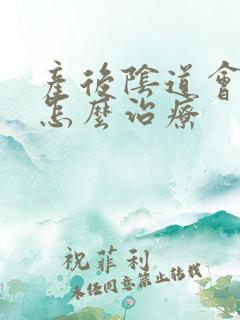 產後陰道會
怎麼治療
祝菲利
未經同意禁止轉載